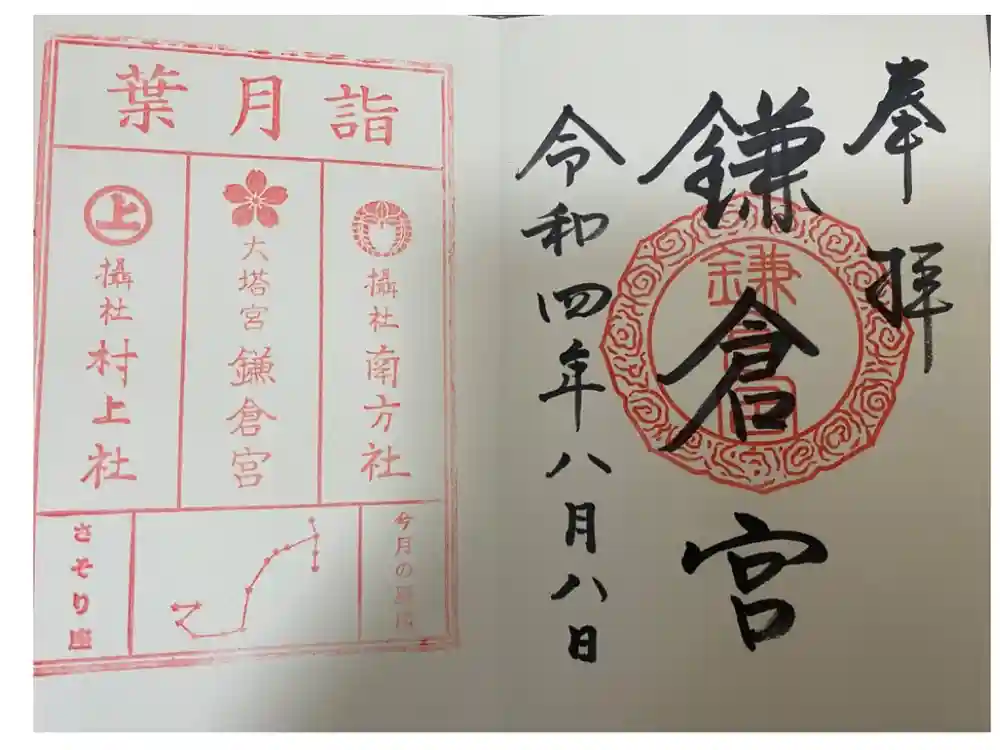 奉拝
鎌倉宮
鎌倉宮
令和四年八月八日
詣月葉
攝社 南方社
大塔宮 鎌倉宮
上
攝社 村上社
今月の星座
さそり座